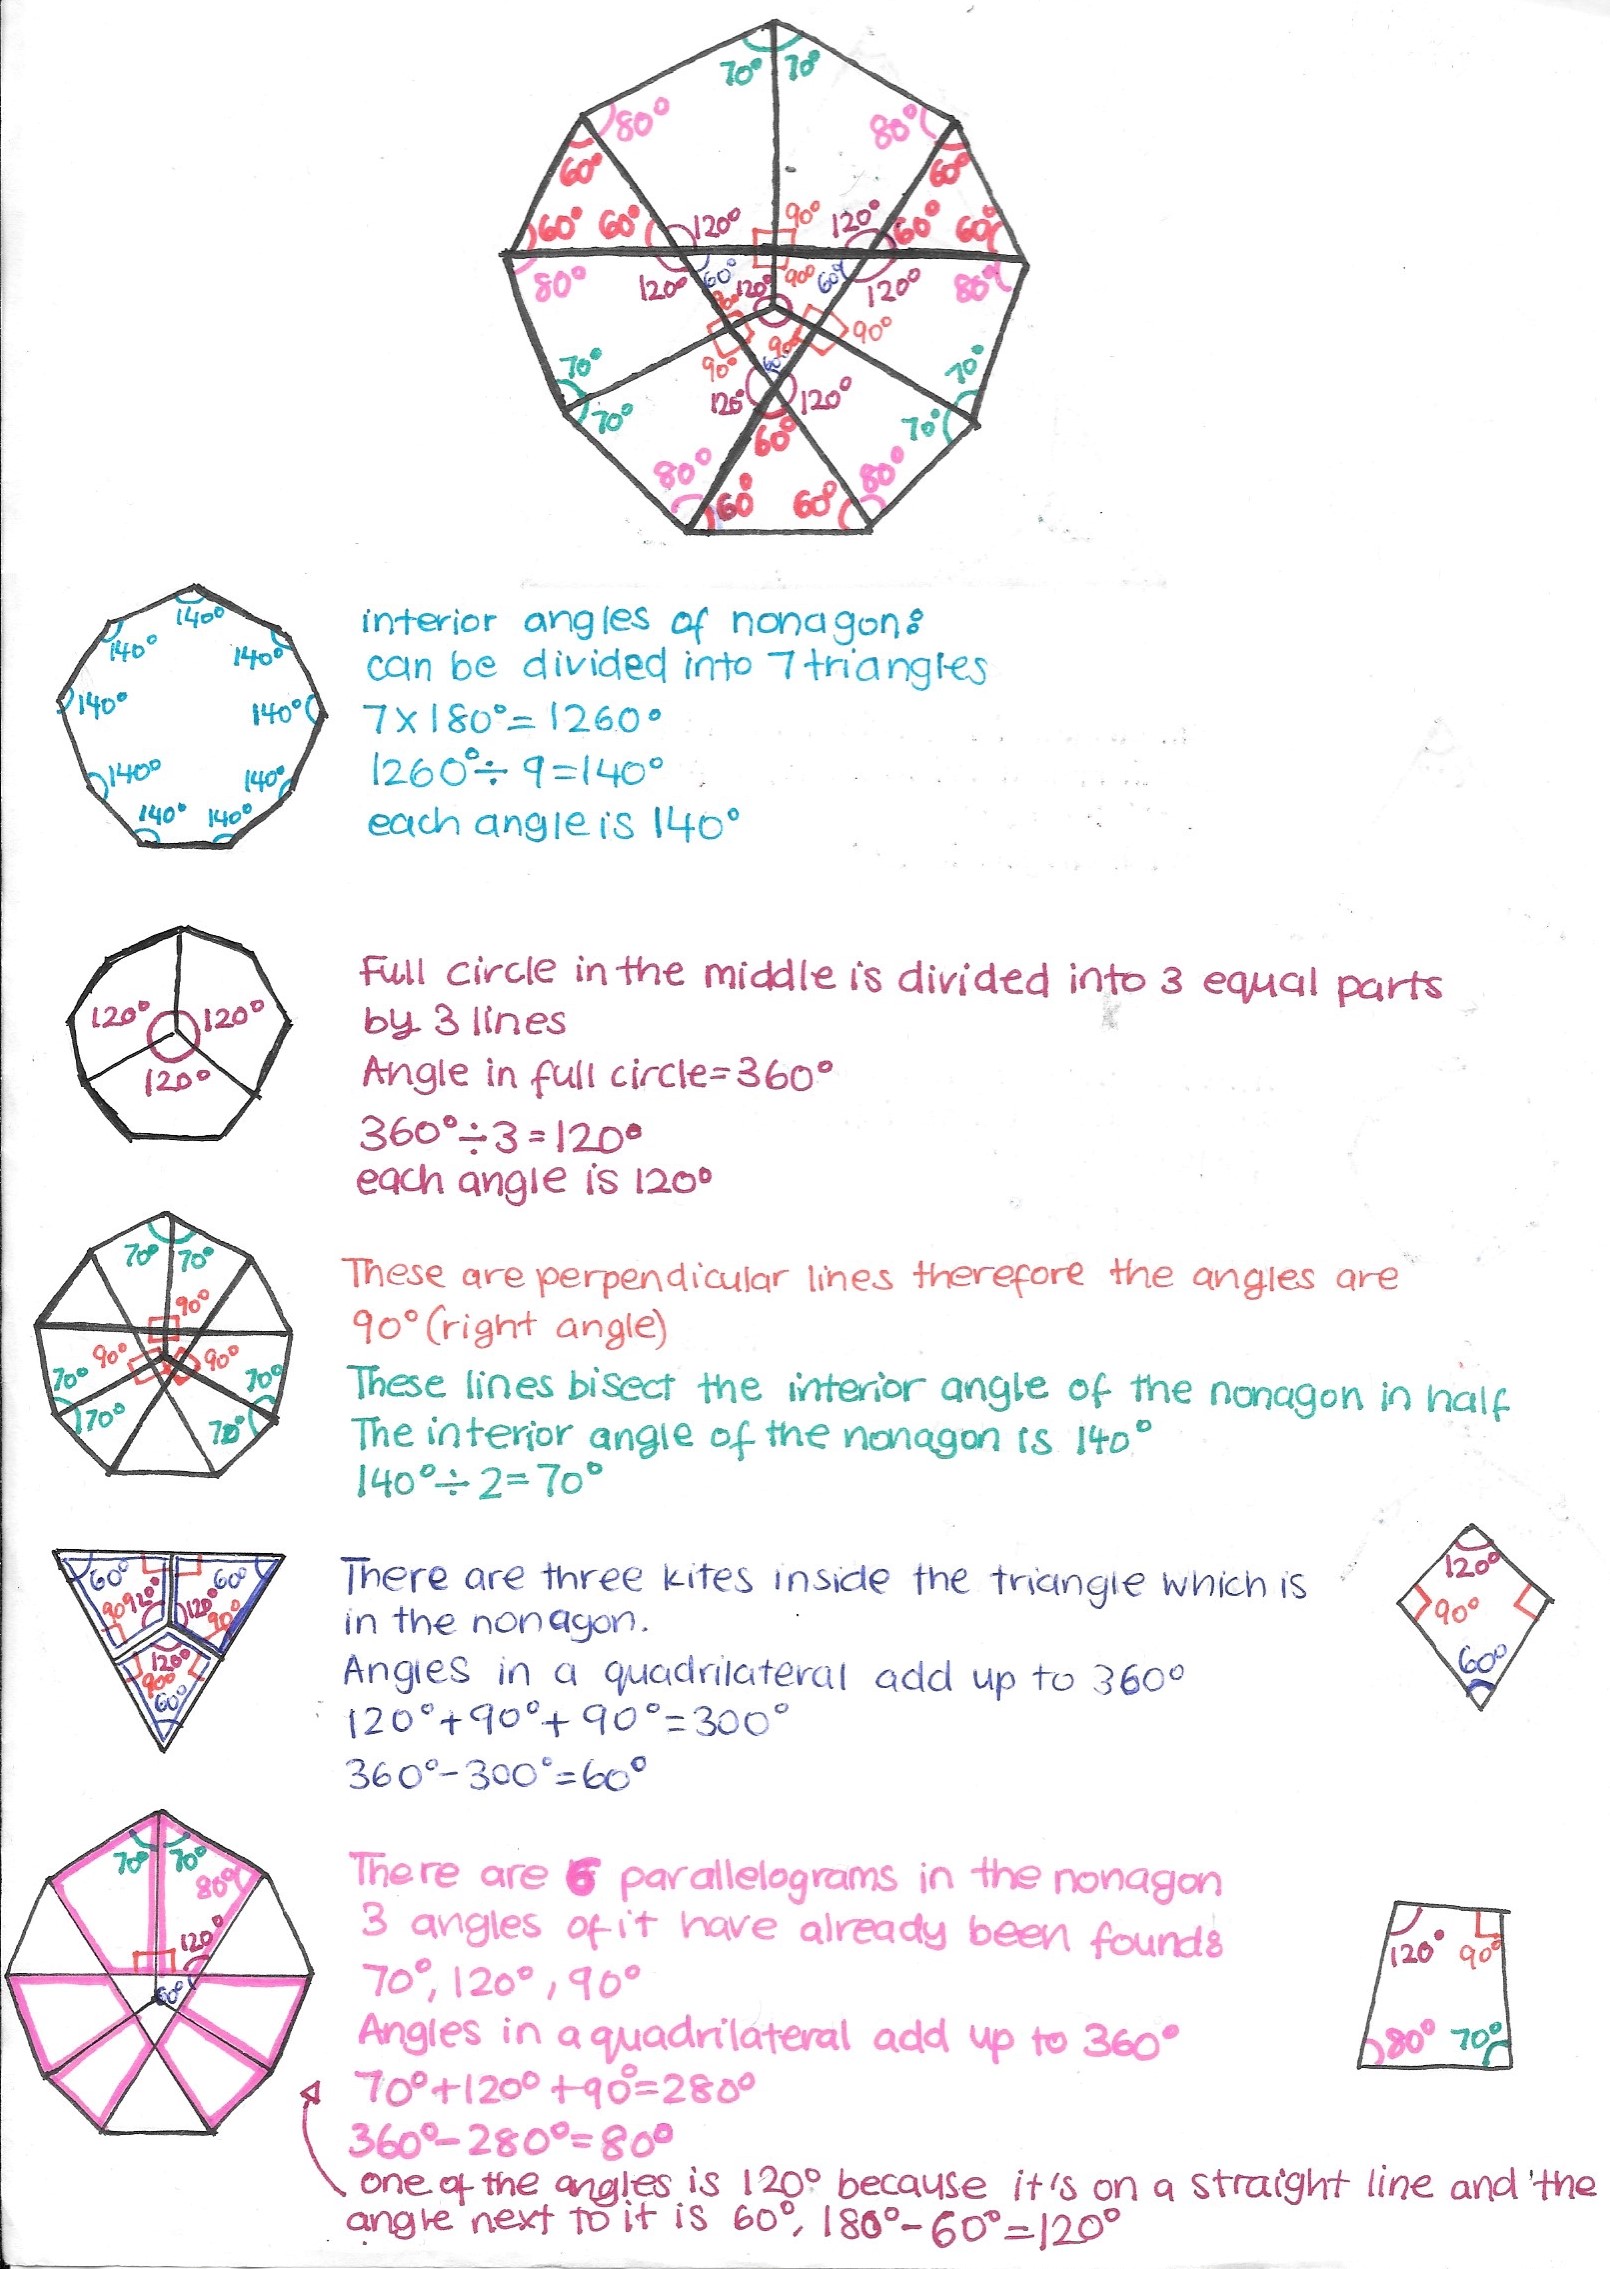 70° 70°
80° 80°
60° 60°
60° 60° 120° 90° 120° 60° 60°
80° 120° 60° 120° 90° 60° 120° 80°
90° 90° 90°
70° 90° 60° 70°
70° 120° 120° 70°
80° 60° 80°
60° 60°
140°
140° 140°
140° 140°
140° 140°
140° 140°
interior angles of nonagon:
can be divided into 7 triangles
7 x 180° = 1260°
1260° ÷ 9 = 140°
each angle is 140°
120° 120°
120°
Full circle in the middle is divided into 3 equal parts
by 3 lines
Angle in full circle = 360°
360° ÷ 3 = 120°
each angle is 120°
70° 70°
90°
90° 90°
70° 70°
70° 70°
These are perpendicular lines therefore the angles are
90° (right angle)
These lines bisect the interior angle of the nonagon in half
The interior angle of the nonagon is 140°
140° ÷ 2 = 70°
60° 60°
90° 120° 120° 90°
120°
90°
60°
There are three kites inside the triangle which is
in the nonagon.
Angles in a quadrilateral add up to 360°
120° + 90° + 90° = 300°
360° - 300° = 60°
120°
90°
60°
70° 70°
80°
120
60°
There are 6 parallelograms in the nonagon
3 angles of it have already been found:
70°, 120°, 90°
Angles in a quadrilateral add up to 360°
70° + 120° + 90° = 280°
360° - 280° = 80°
one of the angles is 120° because it's on a straight line and the
angle next to it is 60°, 180° - 60° = 120°
120° 90°
80° 70°